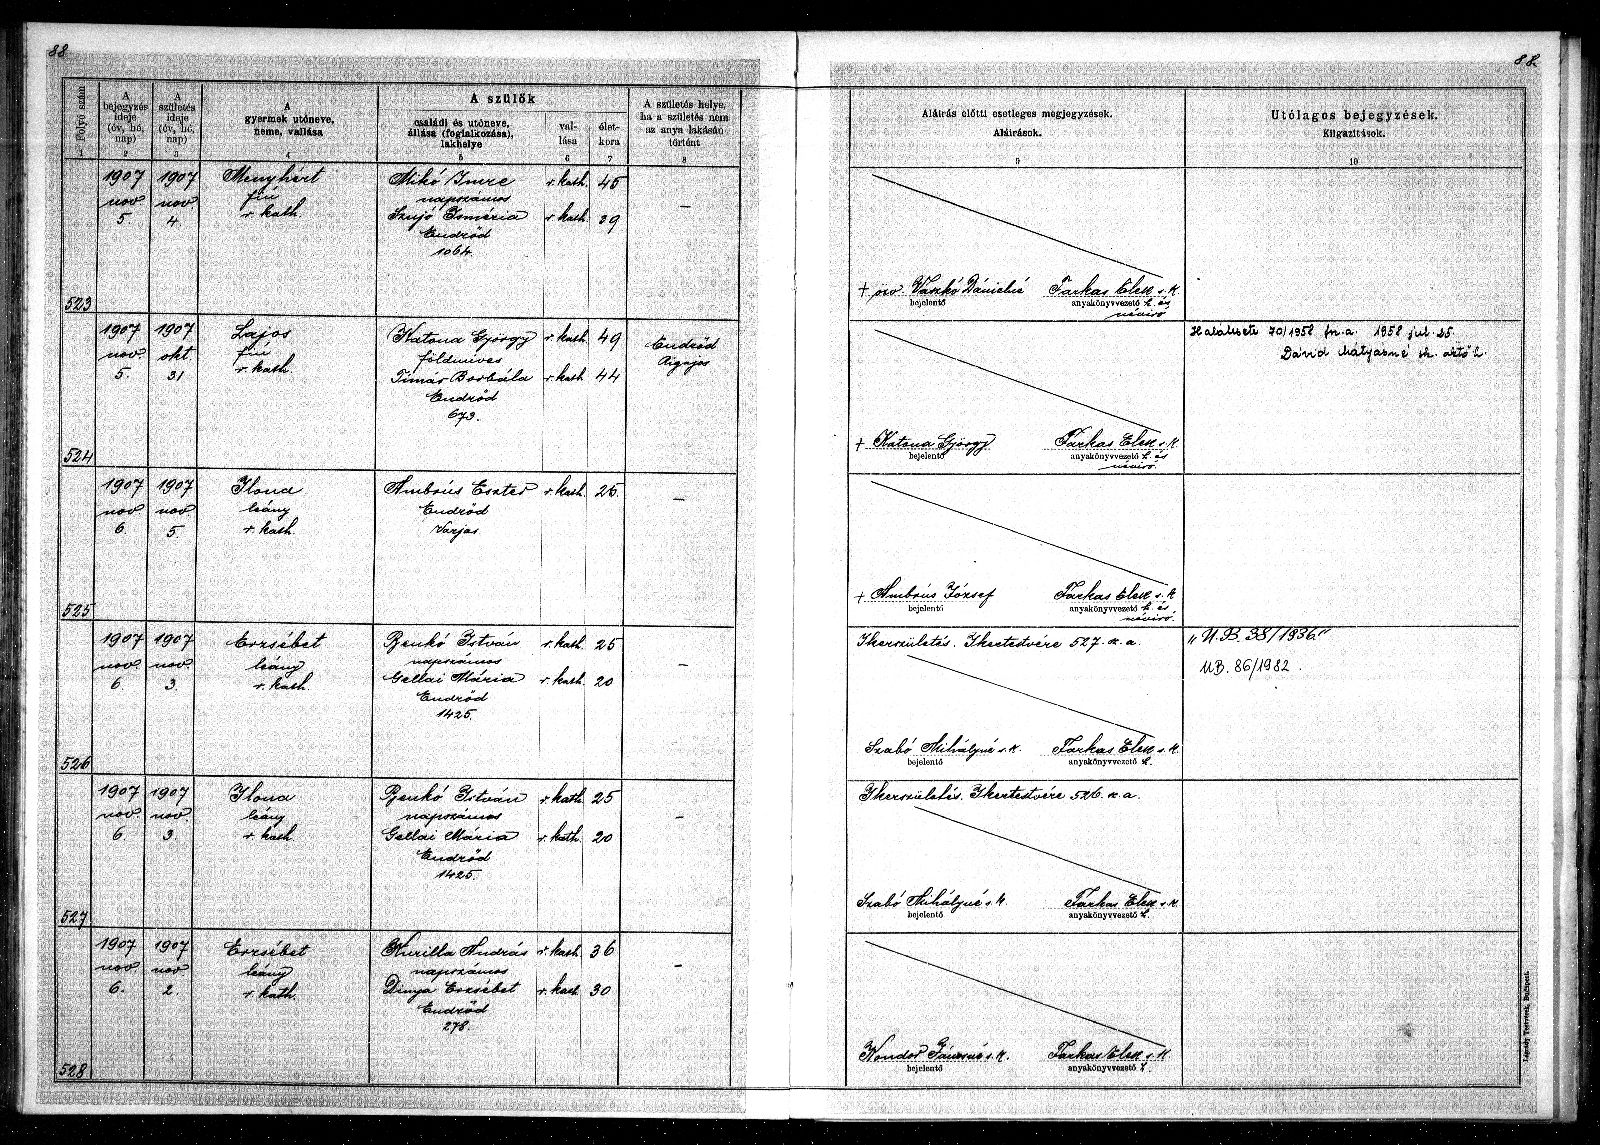 88
88.
Folyó szám
A bejegyzés ideje (év, hó, nap)
A születés ideje (év, hó, nap)
A gyermek utóneve, neme, vallása
A szülők
családi és utóneve, állása (foglalkozása), lakhelye
vallása
életkora
A születés helye, ha a születés nem az anya lakásán történt
Aláírás előtti esetleges megjegyzések.
Aláírások.
Utólagos bejegyzések.
Kiigazítások.
1 2 3 4 5 6 7 8 9 10
523
1907 nov 5.
1907 nov 4.
Menyhért
fiú
r. kath
Mikó Imre r. kath. 45
napszámos
Szujó Ismézia r. kath. 39
Endrőd
1064.
—
+ özv. Vaszkó Dánielné
bejelentő
Farkas Elek s. k.
anyakönyvvezető h. és
névíró
524
1907 nov. 5.
1907 okt 31
Lajos
fiú
r. kath.
Katona György r. kath. 49
földmíves
Timár Borbála r. kath. 44
Endrőd
673.
Endrőd
+ Katona György
bejelentő
Farkas Elek s. k.
anyakönyvvezető h. és
névíró
Haláleset: 70/1958 fn. a. 1958 jul. 25.
Dávid Mátyásné sk.
525
1907 nov 6.
1907 nov 5.
Ilona
leány
r. kath.
Ambrús Eszter r. kath. 26.
Endrőd
Varjas
—
+ Ambrús József
bejelentő
Farkas Elek s. k.
anyakönyvvezető h. és
névíró
526
1907 nov. 6.
1907 nov. 3.
Erzsébet
leány
r. kath.
Benkó István r. kath. 25
napszámos
Gellai Mária r. kath. 20
Endrőd
1425.
—
Ikerszületés. Ikertestvére 527. sz. a.
Szabó Mihályné s. k.
bejelentő
Farkas Elek s. k.
anyakönyvvezető h.
„U. B. 38/1936."
UB. 86/1982.
527
1907 nov. 6.
1907 nov. 3
Ilona
leány
r. kath.
Benkó István r. kath. 25
napszámos
Gellai Mária r. kath. 20
Endrőd
1425.
—
Ikerszületés. Ikertestvére 526. sz. a.
Szabó Mihályné s. k.
bejelentő
Farkas Elek s. k.
anyakönyvvezető h.
528
1907 nov. 6.
1907 nov 2.
Erzsébet
leány
r. kath.
Kurilla András r. kath 36
napszámos
Dinya Erzsébet r. kath 30
Endrőd
278.
—
Kondor Jánosné s. k.
bejelentő
Farkas Elek s. k.
anyakönyvvezető h.
Légrády Testvérek, Budapest.